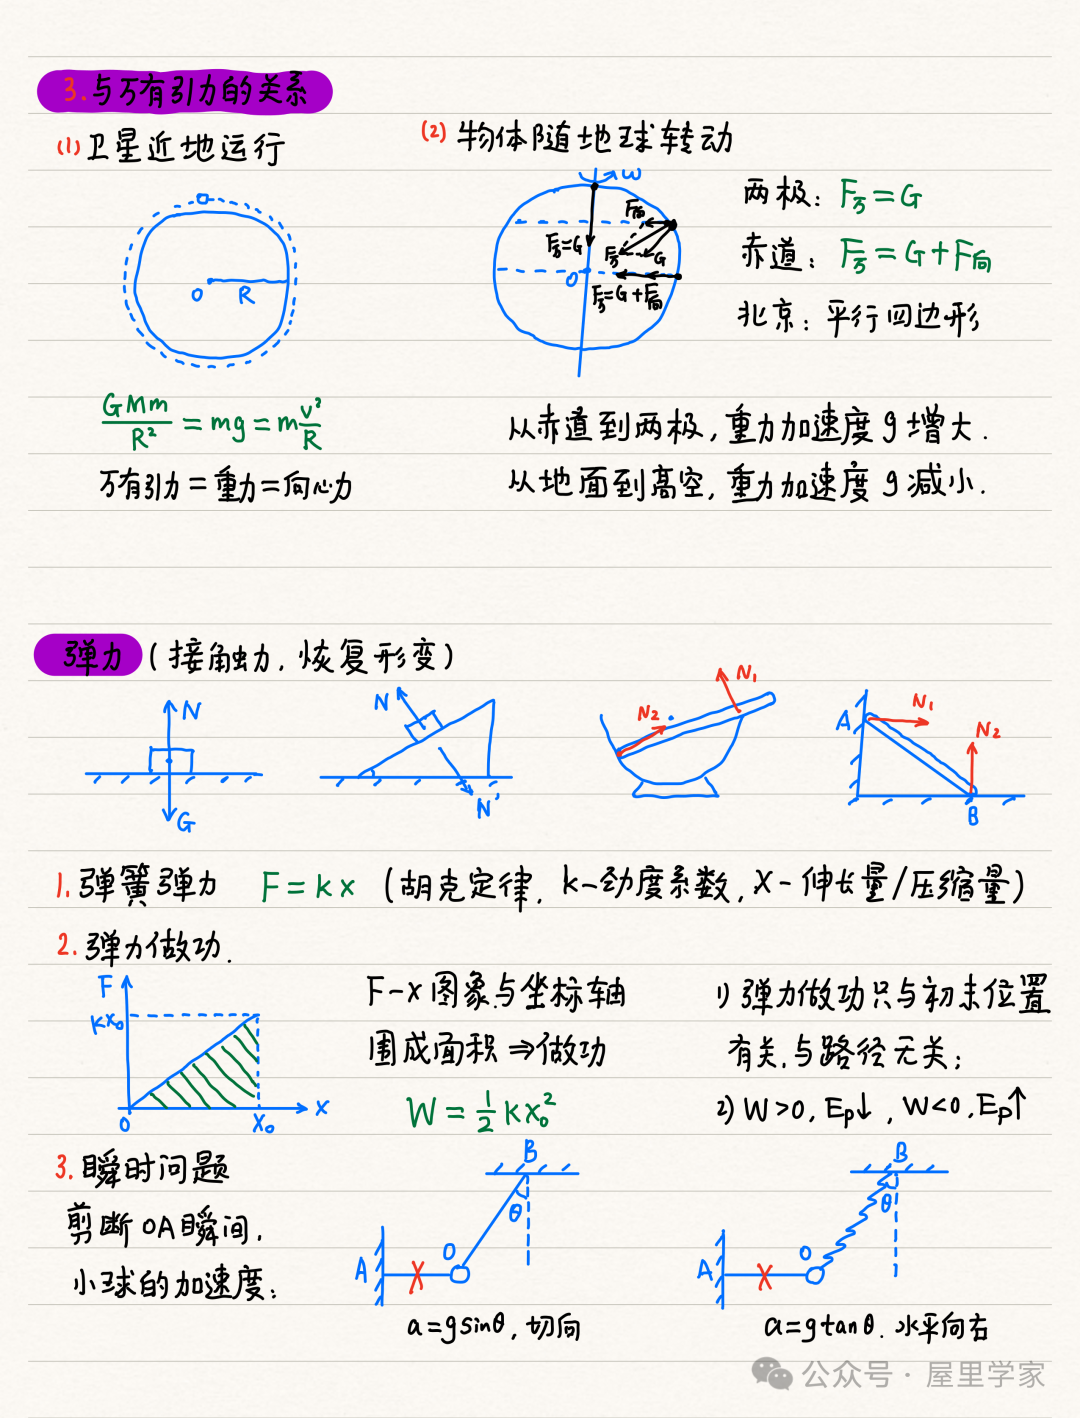 3.与万有引力的关系
(1)卫星近地运行
(2)物体随地球转动
O R
ω
F向
F万=G
F万
G
O
F万=G+F向
两极: F万=G
赤道: F万=G+F向
北京: 平行四边形
GMm/R² = mg = m v²/R
万有引力=重力=向心力
从赤道到两极,重力加速度g增大.
从地面到高空,重力加速度g减小.
弹力(接触力.恢复形变)
N
G
N
N'
N₁
N₂
A
N₁
N₂
B
1.弹簧弹力 F=kx (胡克定律, k-劲度系数, x-伸长量/压缩量)
2.弹力做功.
F
kx₀
0
x₀
x
F-x图象与坐标轴
围成面积⇒做功
W=½kx₀²
1)弹力做功只与初末位置
有关,与路径无关;
2)W>0,Ep↓, W<0,Ep↑
3.瞬时问题
剪断OA瞬间,
小球的加速度:
B
θ
O
A
a=gsinθ,切向
B
θ
O
A
a=gtanθ.水平向右
公众号·屋里学家